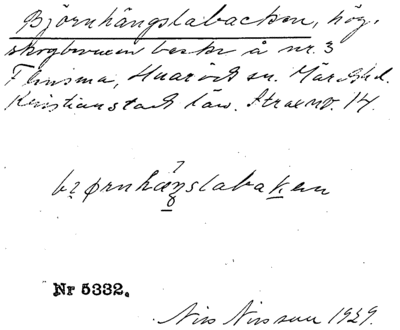 Björnhängslabacken, hög,
skogbevuxen backe å nr. 3
Flinsma, Huaröd sn. Gärds hd.
Kristianstads län. Strax nv. 14.
bɿørnhäŋslabaken
Nr 5332.
Nils Nilsson 1929.